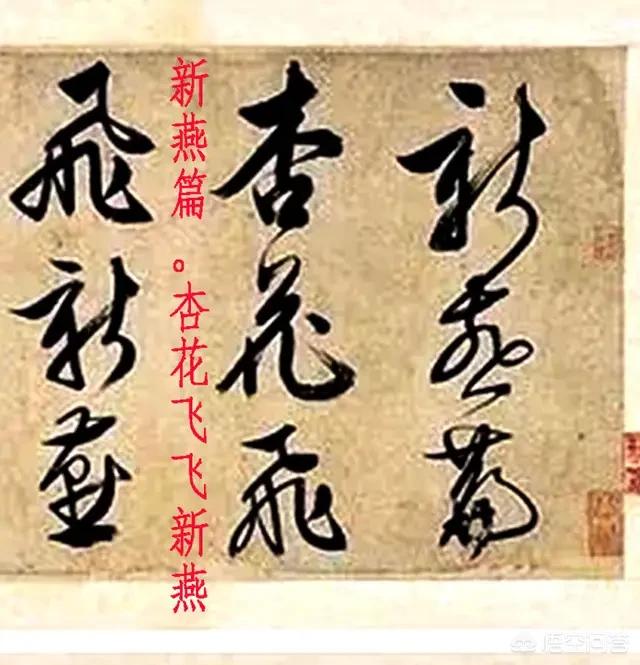 新燕篇
杏花飛
新燕篇。杏花飞飞新燕
飛新燕
悟空问答